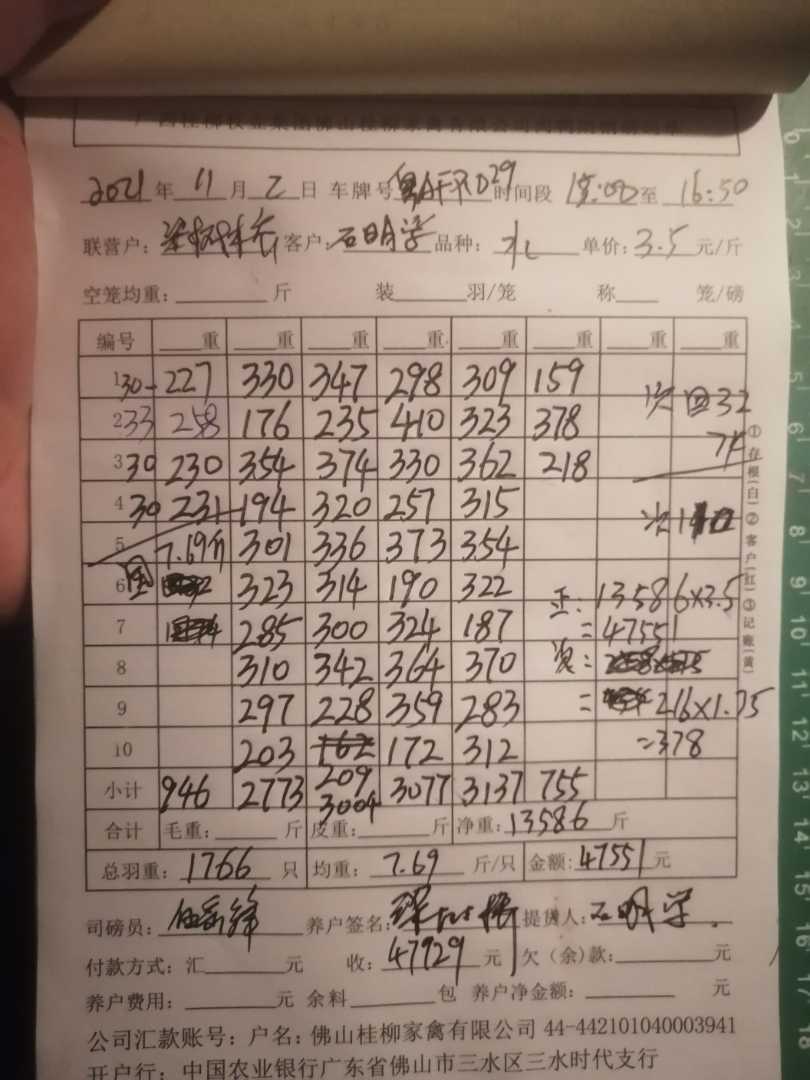 2021 年 11 月 2 日 车牌号 时间段 15:00 至 16:50
联营户: 客户: 石明学 品种: 水 单价: 3.5 元/斤
空笼均重: 斤 装 羽/笼 称 笼/磅
编号 重 重 重 重 重 重 重 重
1 30 227 330 347 298 309 159
2 33 258 176 235 410 323 378 次 回 32
3 30 230 354 374 330 362 218
4 30 231 194 320 257 315
5 7.69斤 301 336 373 354
6 323 314 190 322 正: 13586×3.5
7 285 300 324 187 =47551
8 310 342 364 370
9 297 228 359 283 = 216×1.75
10 203 162 172 312 =378
209
小计 946 2773 3004 3077 3137 755
合计 毛重: 斤 皮重: 斤 净重: 13586 斤
总羽重: 1766 只 均重: 7.69 斤/只 金额: 47551 元
司磅员: 养户签名: 提货人: 石明学
付款方式: 汇 元 收: 47929 元 欠(余)款: 元
养户费用: 元 余料 包 养户净金额: 元
公司汇款账号: 户名: 佛山桂柳家禽有限公司 44-442101040003941
开户行: 中国农业银行广东省佛山市三水区三水时代支行
①存根(白)②客户(红)③记账(黄)
6 7 8 9 10 11 12 13 14 15 16 17 18